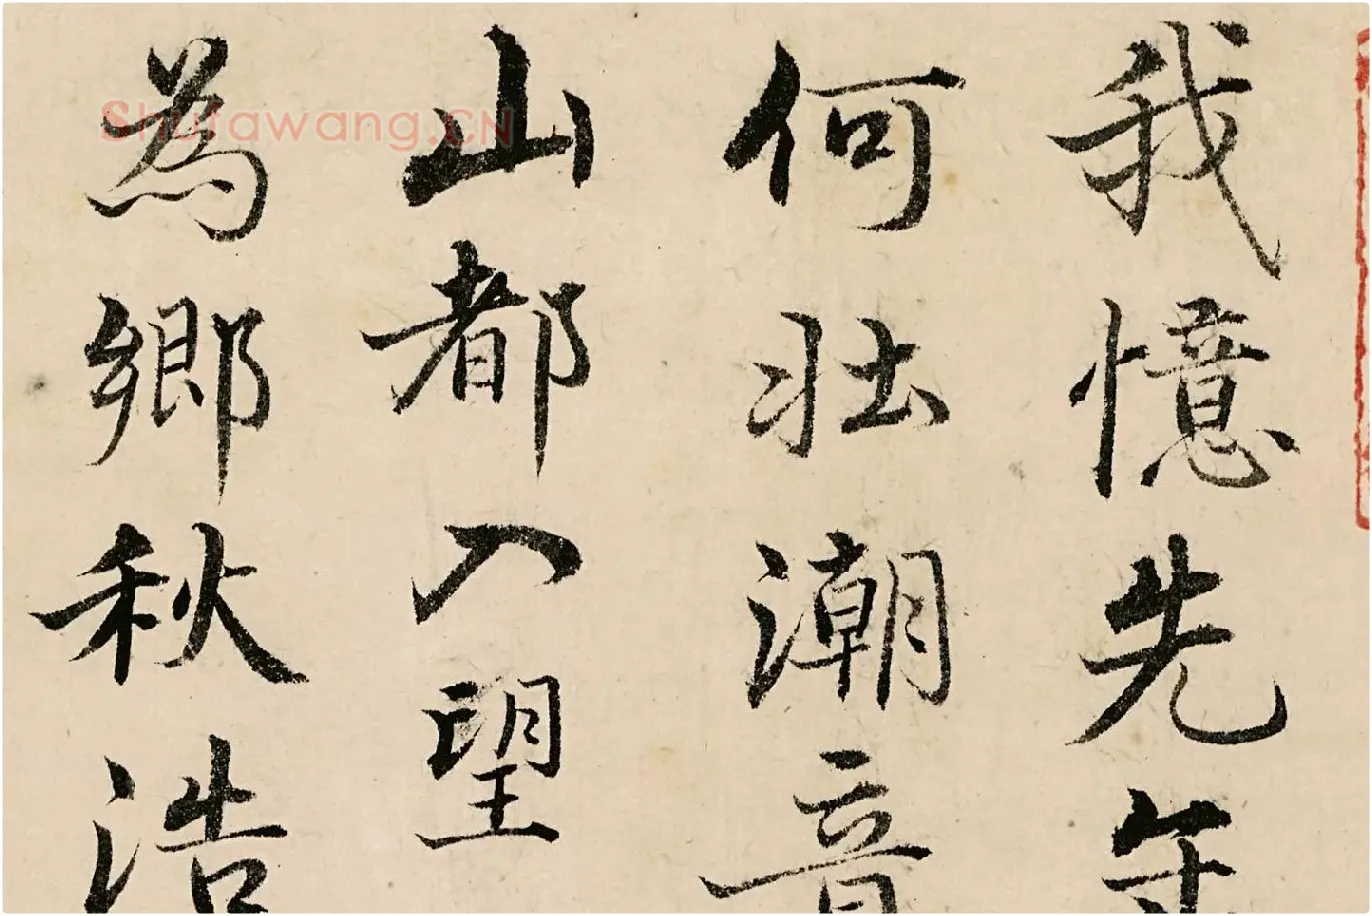 我憶先年
何壯潮音
山都入望
為鄉秋浩
Shufawang.CN